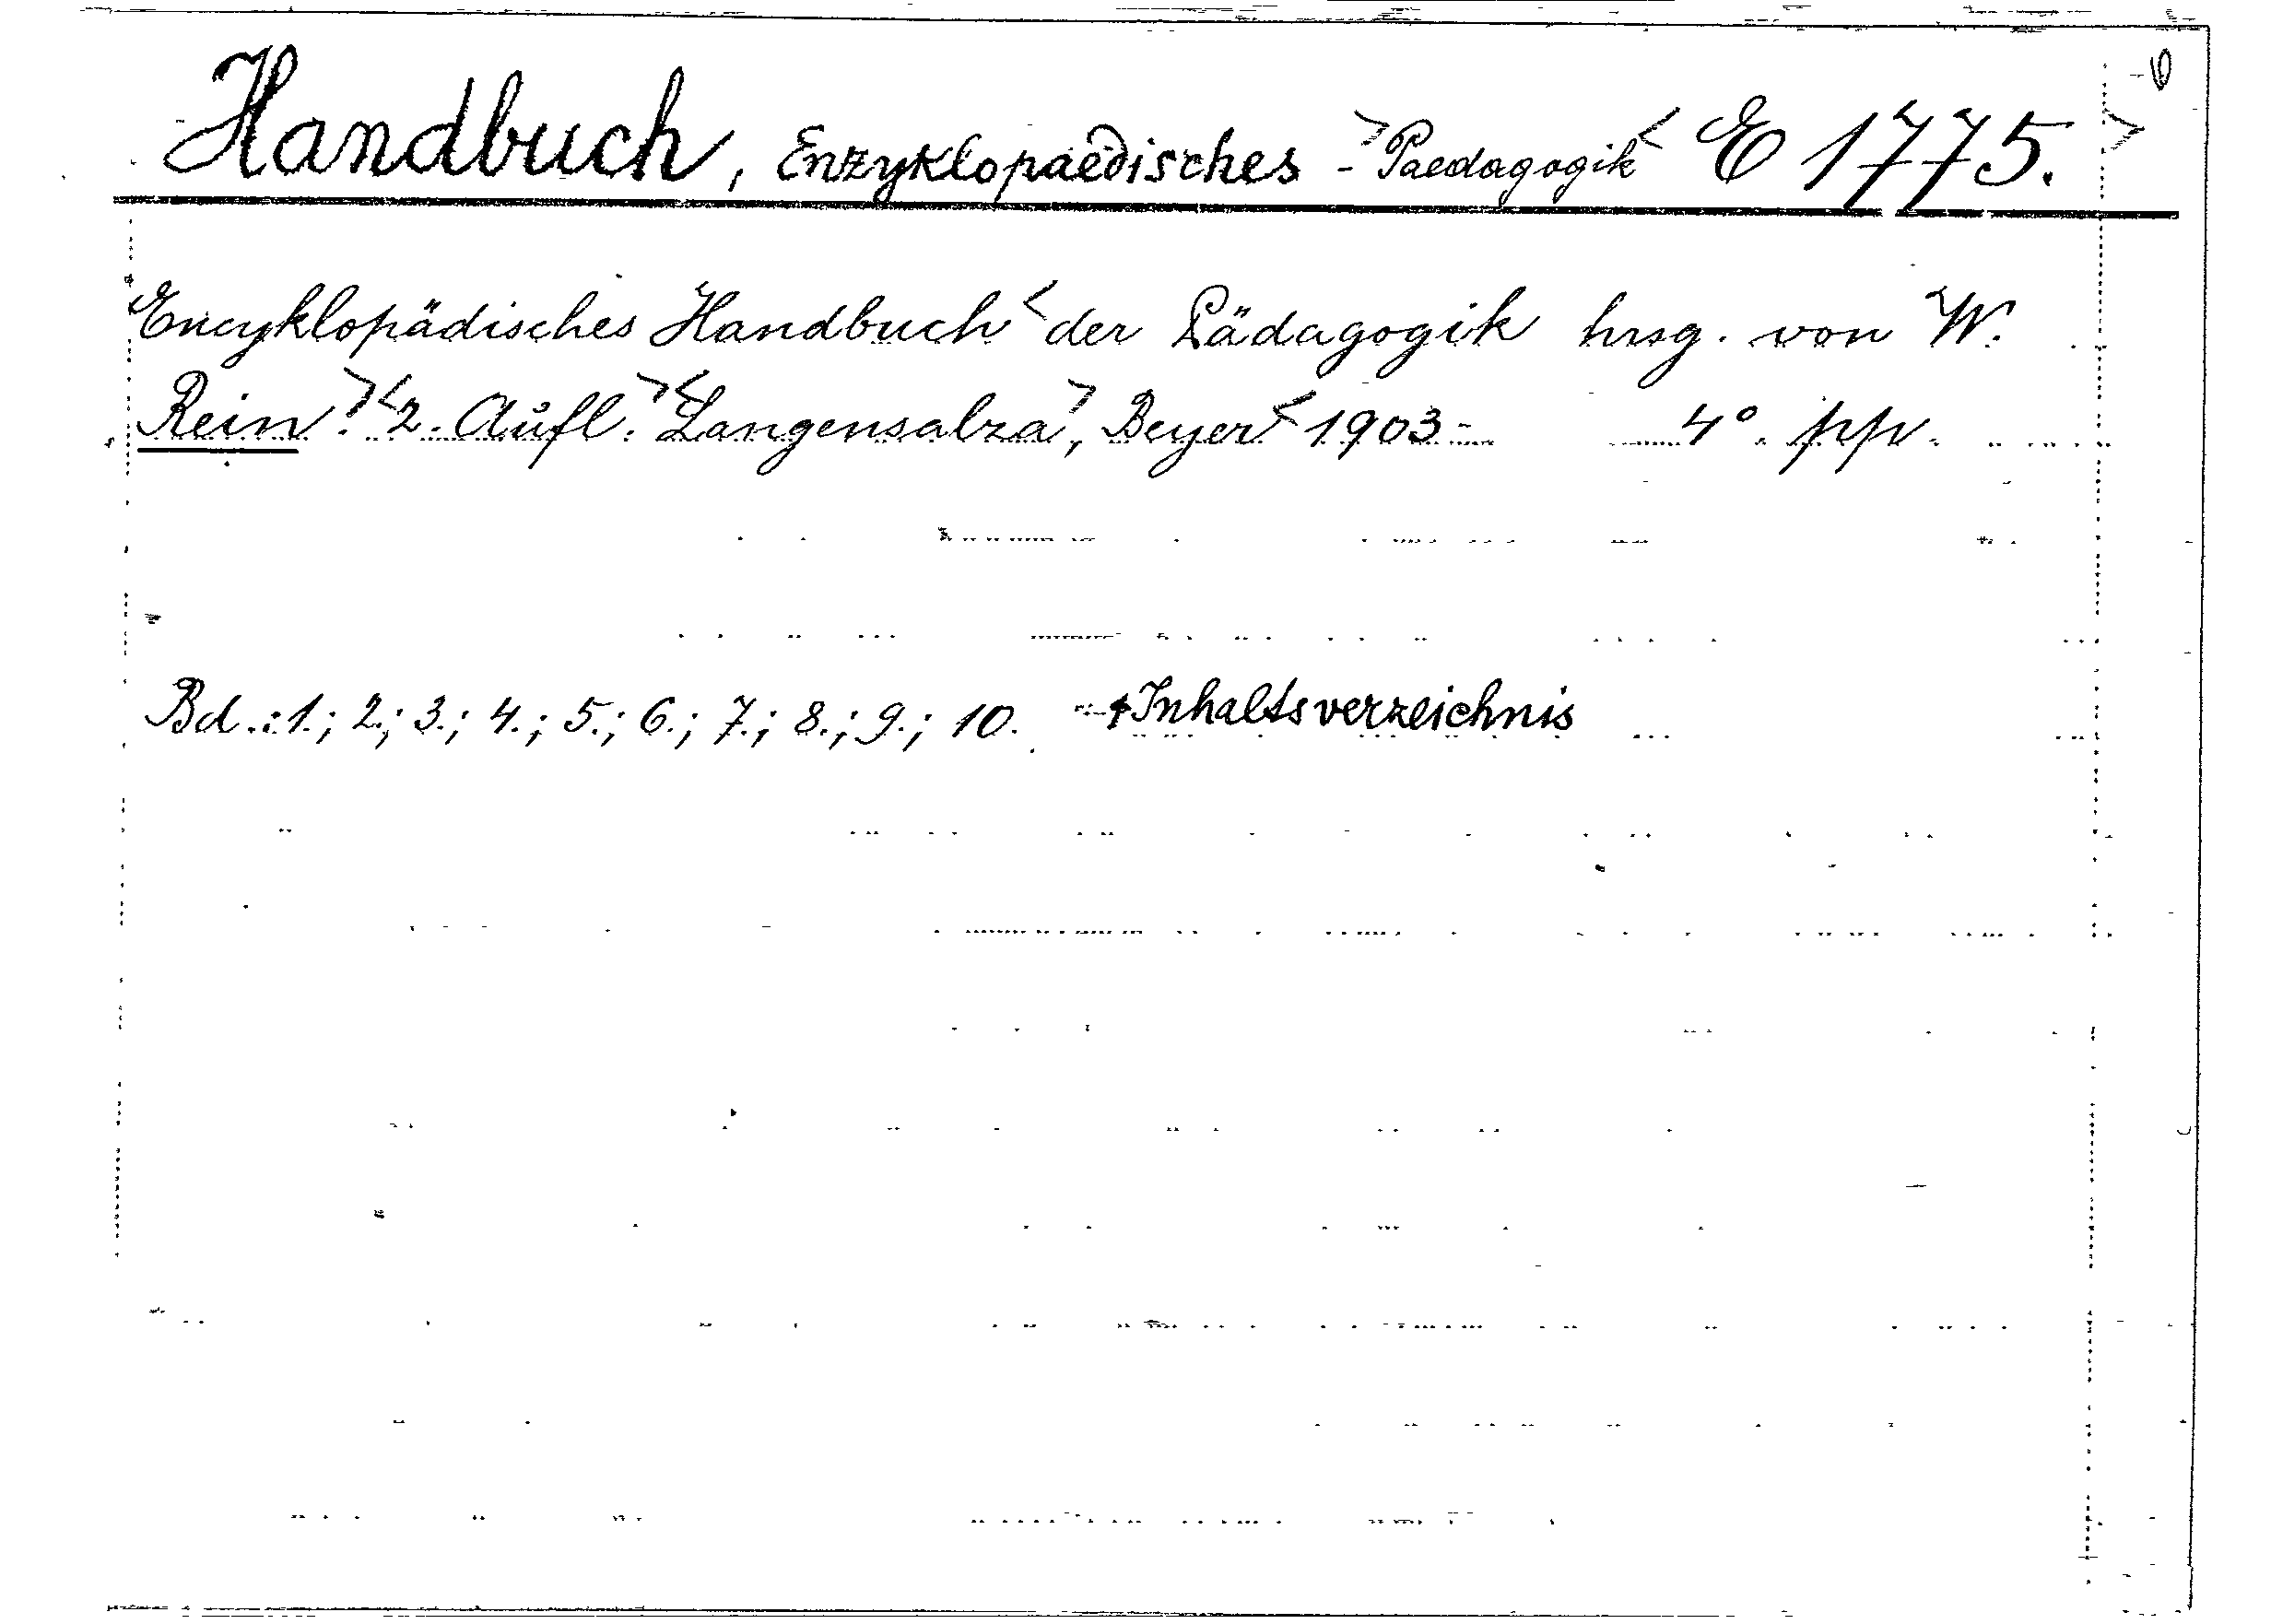 Handbuch, Enzyklopaedisches - >Paedagogik< E 1775. >
Encyklopädisches Handbuch< der Pädagogik hrsg. von W.
Rein.> <2. Aufl.> <Langensalza>, Beyer< 1903- 4°. pp.
Bd.: 1.; 2.; 3.; 4.; 5.; 6.; 7.; 8.; 9.; 10. + Inhaltsverzeichnis